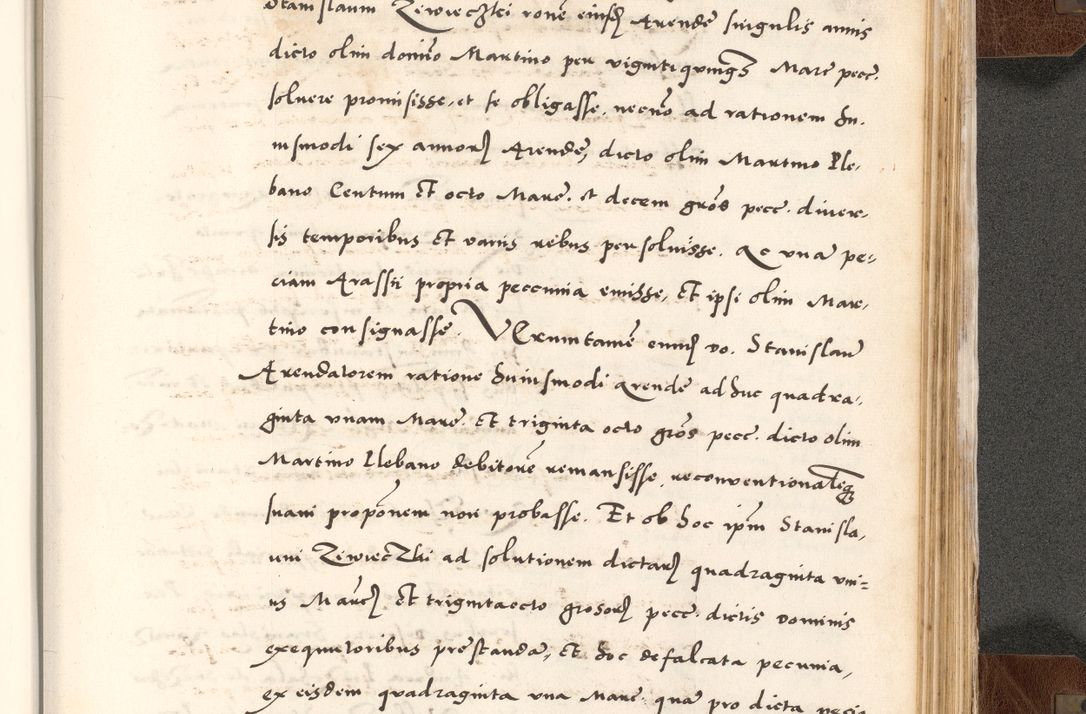 Stanislaum Ziwieczki ronē eiusdē Arende singulis annis
dicto olim domīo Martino per viginti quinq₃ Marc pecc.
soluere promisisse, et se obligasse, necnō ad rationem hu,
iusmodi sex annorꝝ Arende, dicto olim Martino Ple,
bano Centum Et octo Marc. et decem grōs pecc. diuer,
sis temporibus Et varijs rebus persoluisse. Ac vna pe,
ciam Arassii propria peccunia emisse, Et ipsi olim Mar,
tino consignasse. Veruntamē eundē do. Stanislaū
Arendatorem ratione huiusmodi arende adhuc quadra,
ginta vnam Marc. Et triginta octo grōs pecc. dicto olim
Martino Plebano debitorē remansisse, reconventionalēq₃
suam propōnem non probasse. Et ob hoc ipm̄ Stanisla,
um ZiwiecZki ad solutionem dictarꝝ quadraginta vni=
us Marcꝝ Et trigintaocto grosorꝝ pecc. dictis dominis
exequutoribus prestanda, Et hoc defalcata pecunia,
ex eisdem quadraginta vna Marc. qua pro dicta pecia